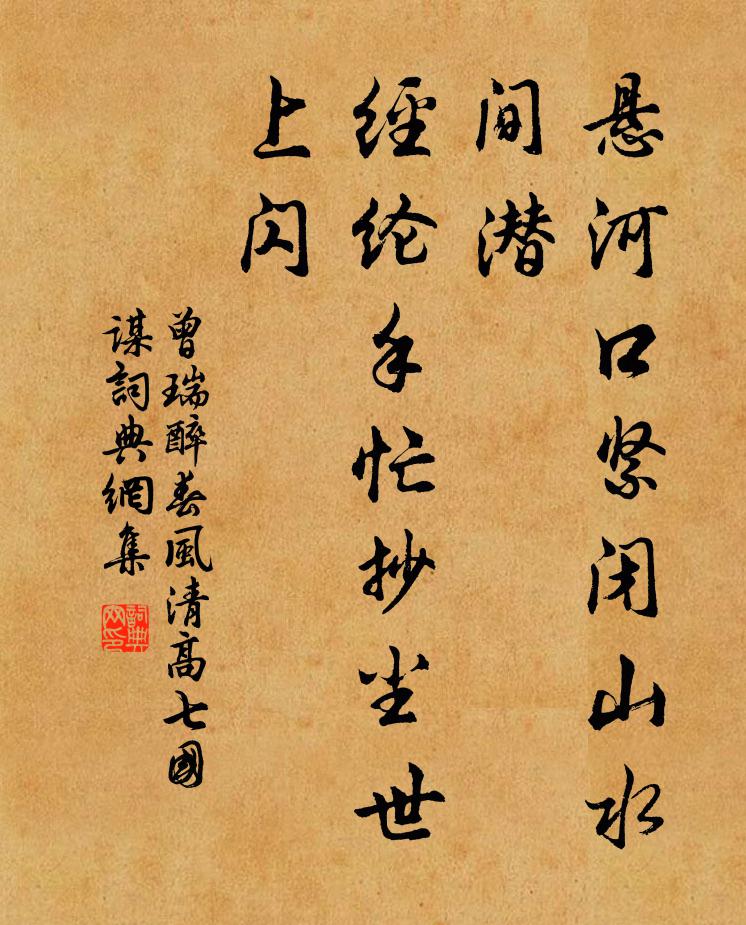 悬河口紧闭山水
间潜
經纶手忙抄尘世
上闪
曾瑞醉春風清高七國
谋詞典網集
詞典
网印